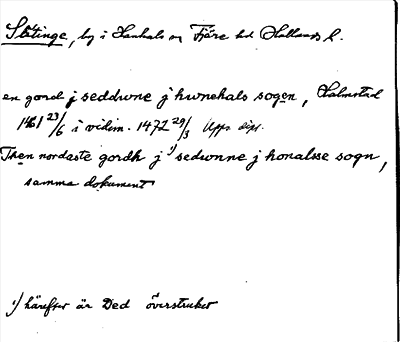 Stötinge, by i Hanhals sn Fjäre hd Hallands l.
en gordh j seddwne j hwnehals sogen, Halmstad
1461 23/6 i vidim. 1472 29/3 Upps. dipl.
Then nordaste gordh j 1) sedwnne j honalsse sogn,
samma dokument
1) härefter är Ded överstruket